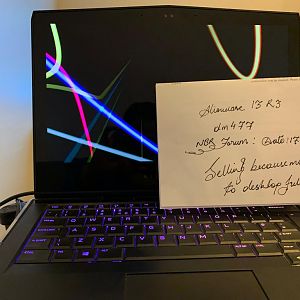 Alienware 13 R3
dm477
NBR Forum: Date: 17
Selling because m
to desktop ful